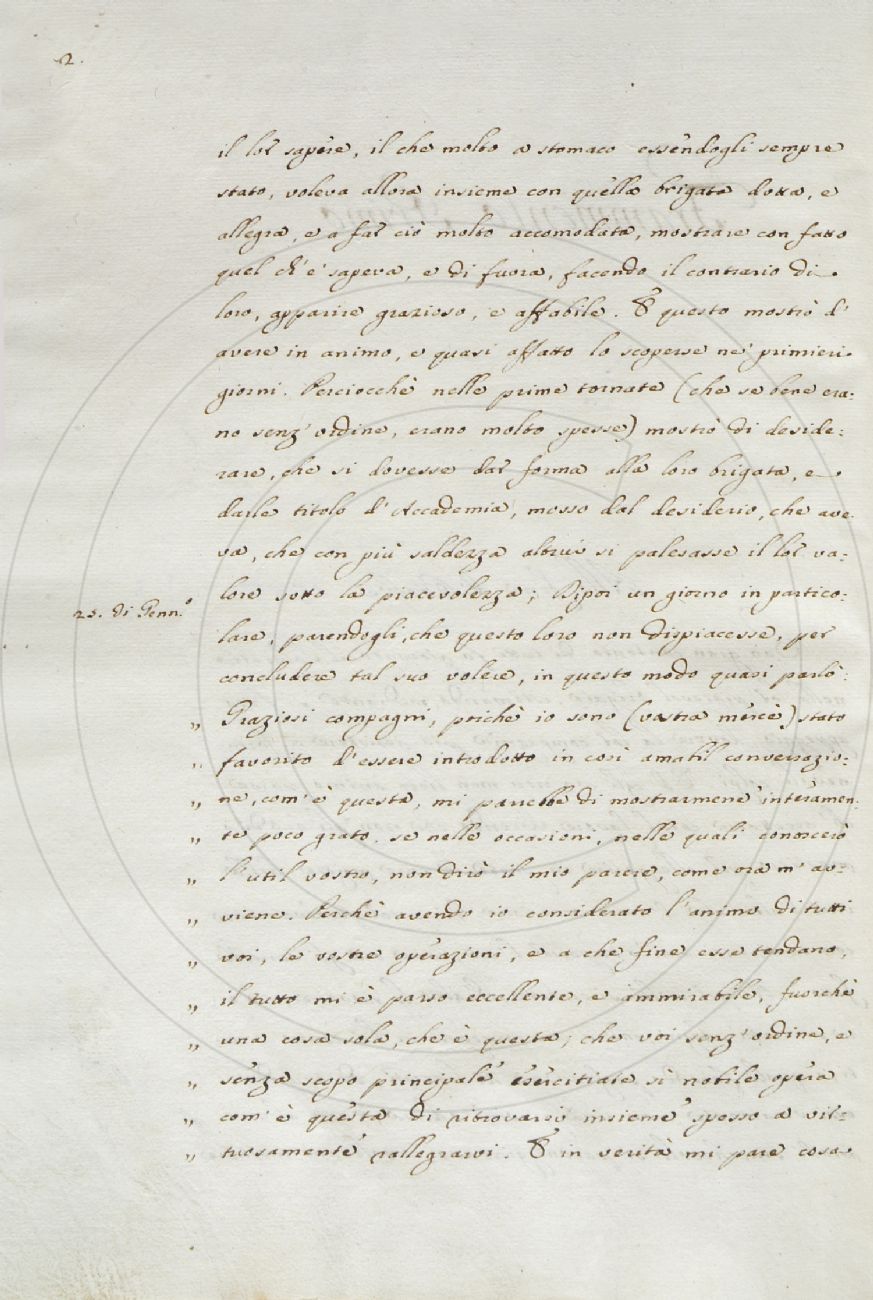 2.
il lor sapere, il che molto a stomaco essendogli sempre
stato, voleva allora insieme con quella brigata dotta, e
allegra, e a far ciò molto accomodata, mostrare con fatto
quel ch' e' sapeva, e di fuora, facendo il contrario di
loro, apparire grazioso, e affabile. E questo mostrò d'
avere in animo, e quasi affatto lo scoperse ne' primieri
giorni. Perciocchè nelle prime tornate (che se bene era:
no senz' ordine, erano molto spesse) mostrò di deside:
rare, che si dovesse dar forma alla loro brigata, e
darle titolo d' Accademia, mosso dal desiderio, che ave:
va, che con più saldezza altrui si palesasse il lor va:
lore sotto la piacevolezza; Dipoi un giorno in partico:
25. di Genn.º
lare, parendogli, che questo loro non dispiacesse, per
concludere tal suo volere, in questo modo quasi parlò:
„ Graziosi compagni, poichè io sono (vostra mercè) stato
„ favorito d'essere introdotto in così amabil conversazio:
„ ne, com' è questa, mi parrebbe di mostrarmene interamen:
„ te poco grato, se nelle occasioni, nelle quali conoscerò
„ l'util vostro, non dirò il mio parere, come ora m' av:
„ viene. Perchè avendo io considerato l'animo di tutti
„ voi, le vostre operazioni, e a che fine esse tendano,
„ il tutto mi è parso eccellente, e ammirabile, fuorchè
„ una cosa sola, che è questa; che voi senz' ordine, e
„ senza scopo principale esercitiate sì nobile opera
„ com' è questa di ritrovarvi insieme spesso a vir:
„ tuosamente rallegrarvi. E in verità mi pare cosa